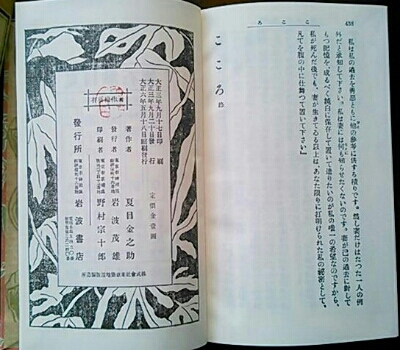 こころ
428
私は私の過去を善惡ともに他の參考に供する積りです。然し妻だけはたつた一人の例
外だと承知して下さい。私は妻には何にも知らせたくないのです。妻が己れの過去に對して
もつ記憶を、成るべく純白に保存して置いて遣りたいのが私の唯一の希望なのですから、
私が死んだ後でも、妻が生きてゐる以上は、あなた限りに打明けられた私の秘密として、
凡てを腹の中に仕舞つて置いて下さい」
こころ 終
大正三年九月十七日印刷
大正三年九月二十日發行
大正六年五月十八日
定價金壹圓
著作者 夏目金之助
發行者 岩波茂雄
印刷者 野村宗十郎
發行所 岩波書店